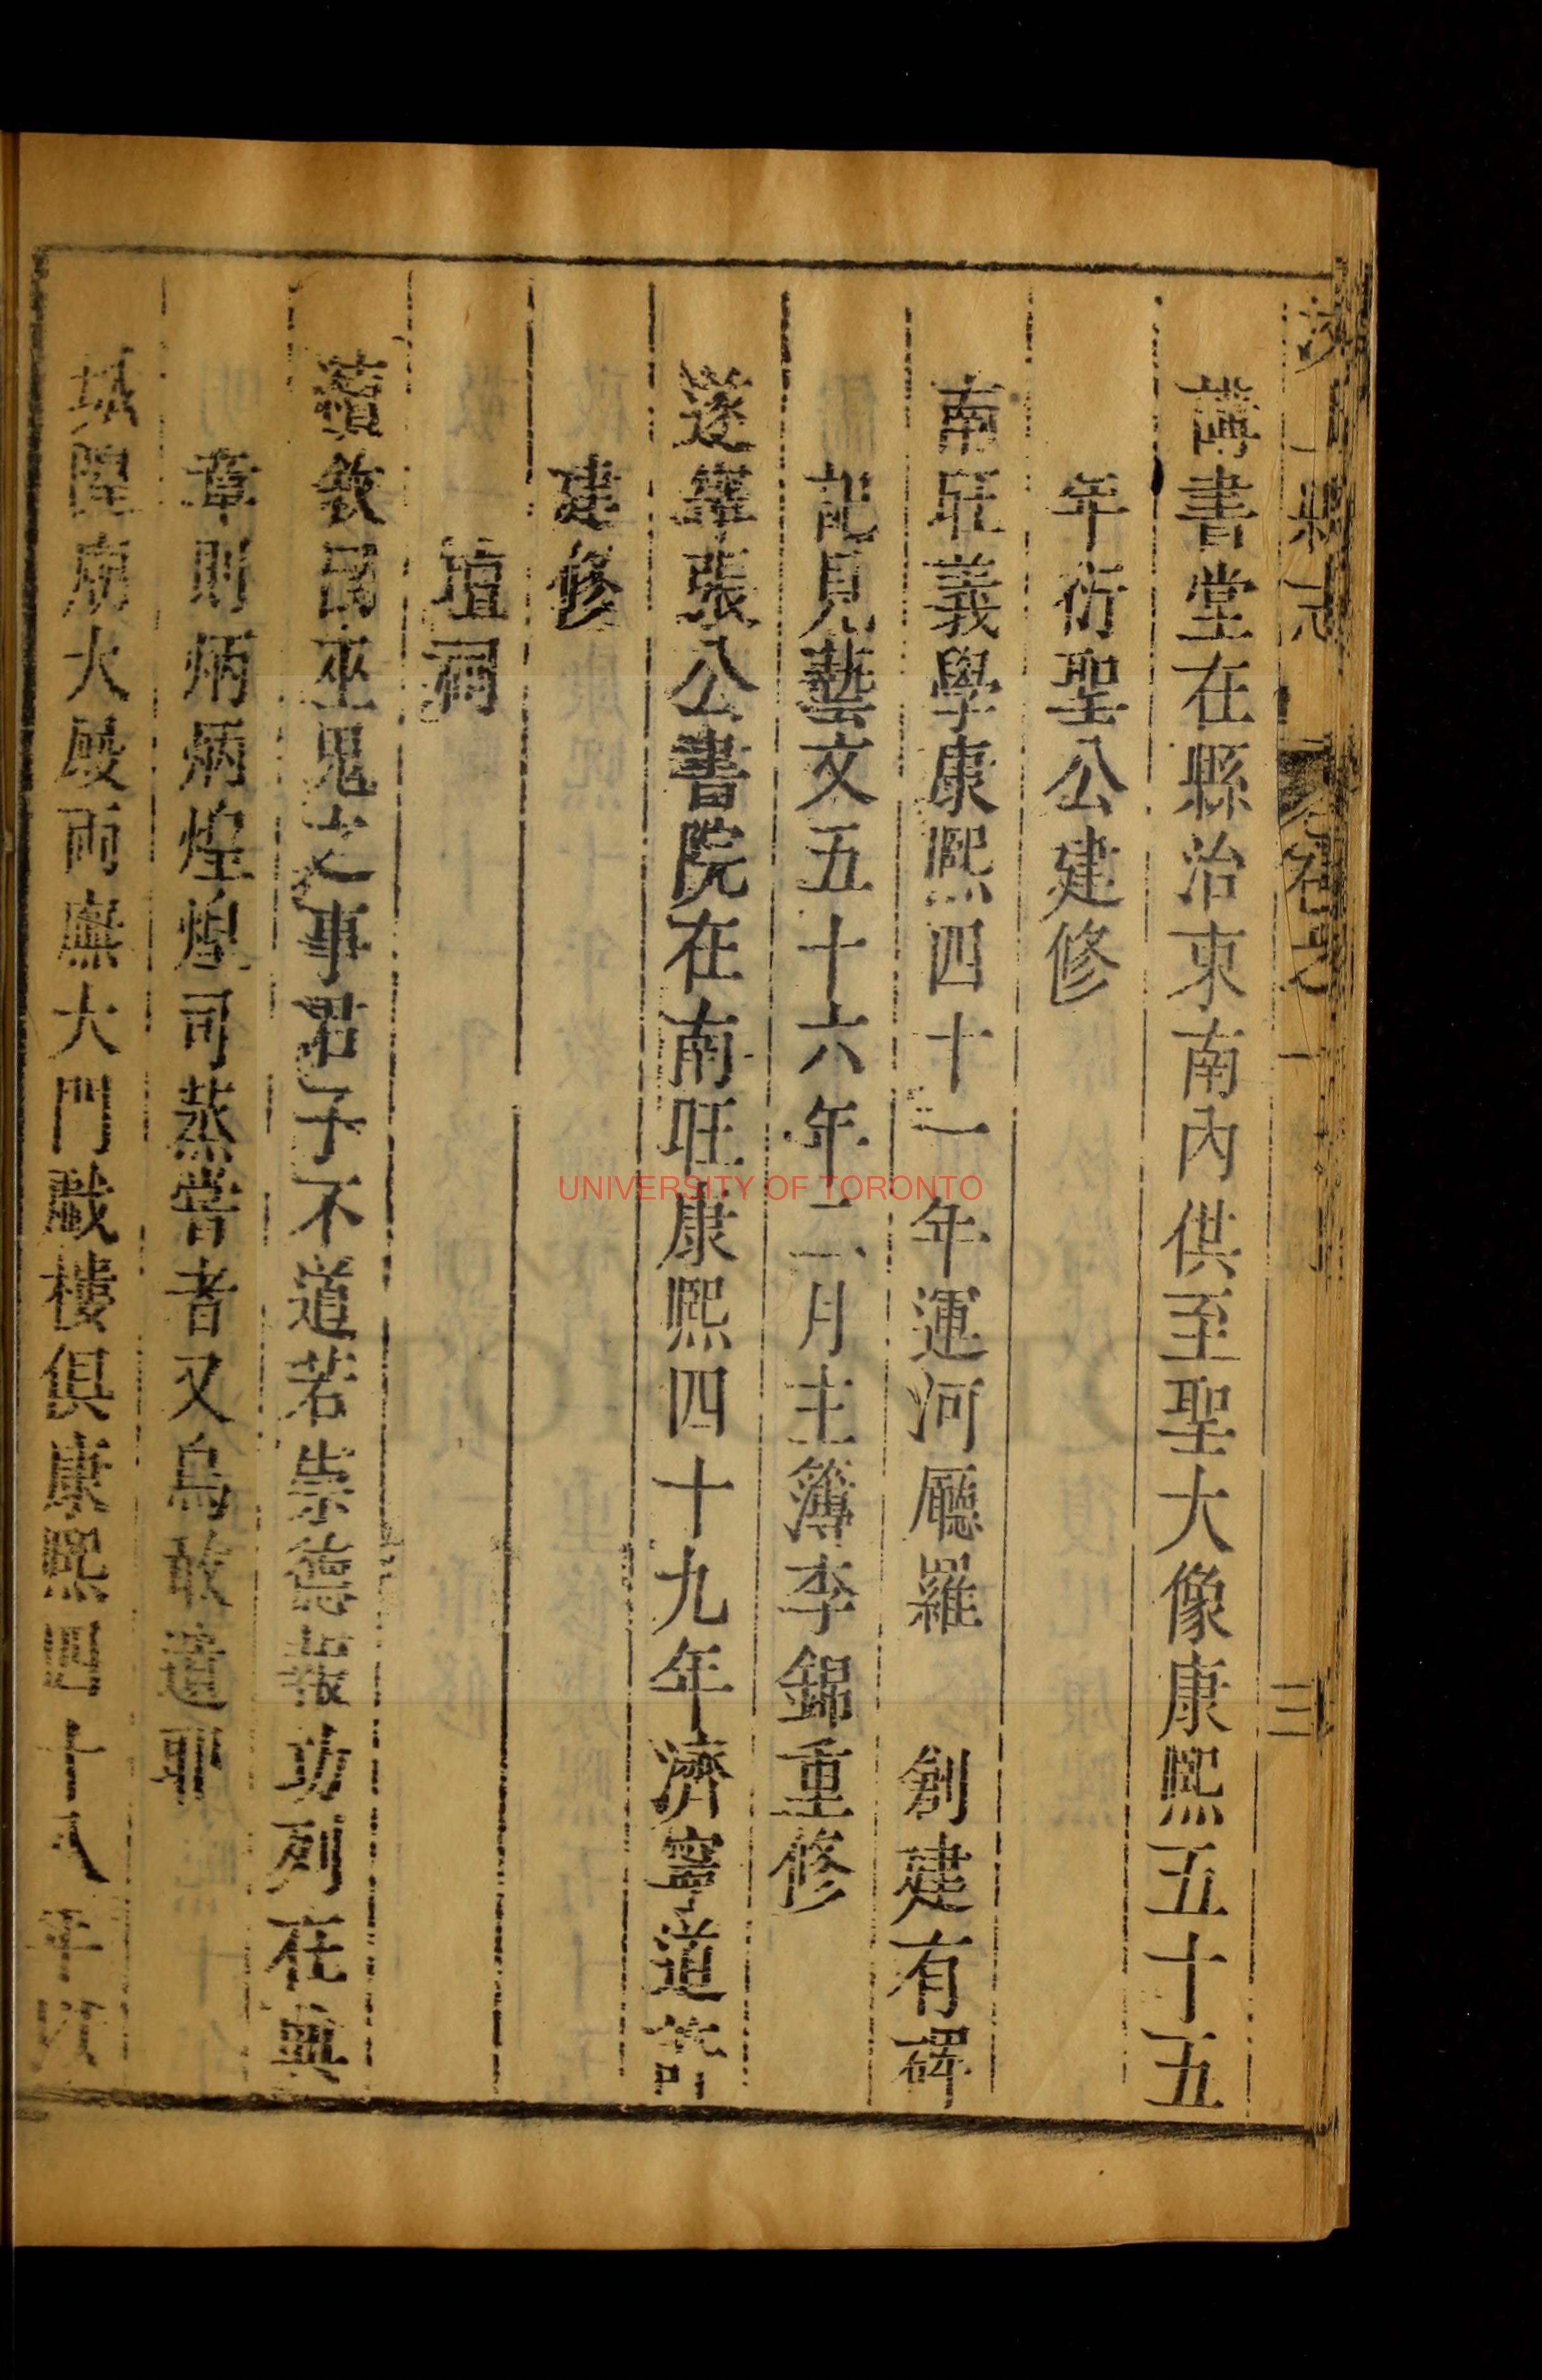 講書堂在縣治東南內供至聖大像康熙五十五
年衍聖公建修
南旺義學康熙四十一年運河廳羅　創建有碑
記見藝文五十六年二月主簿李錦重修
遂寧張公書院在南旺康熙四十九年濟寧道
建修
壇祠
民巫鬼之事君子不道若崇德報功列在典
章則炳炳煌煌司蒸嘗者又烏敢
城隍廟大殿兩廡大門戲樓俱康熙
卷之一
三
UNIVERSITY OF TORONTO